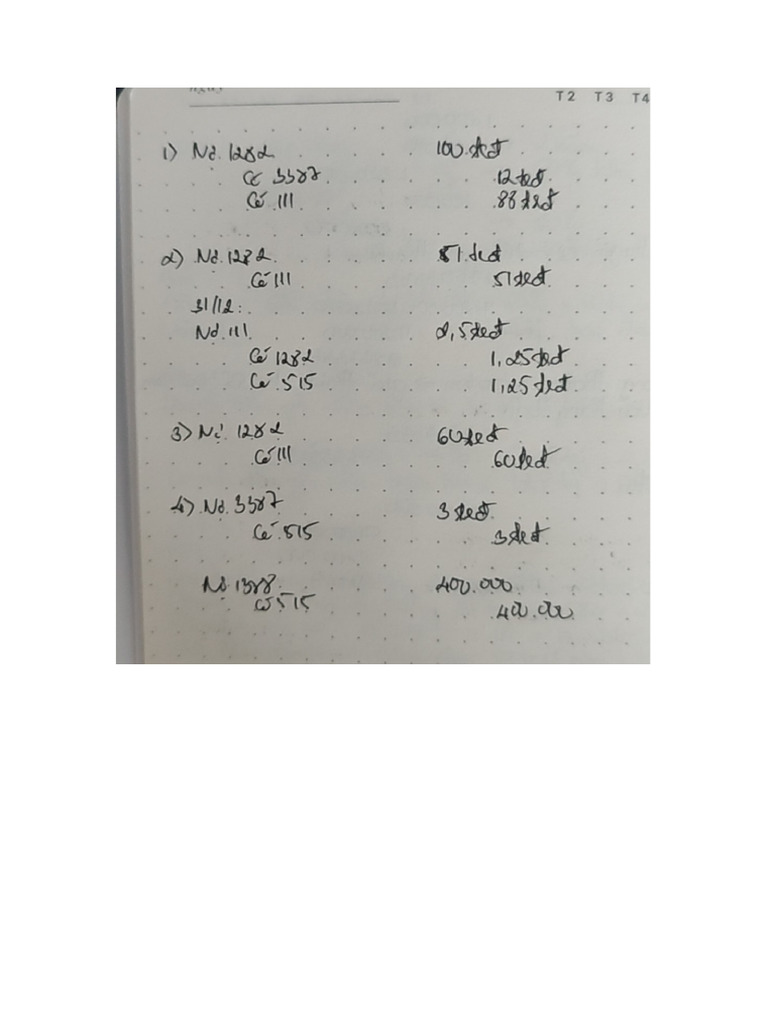 T2 T3 T4
1) Nợ 1282 100.trđ
Có 3387 12trđ
Có 111 88trđ
2) Nợ 1282 51.trđ
Có 111 51trđ
31/12:
Nợ 111 2,5trđ
Có 1282 1,25trđ
Có 515 1,25trđ
3) Nợ 1282 60trđ
Có 111 60trđ
4) Nợ 3387 3trđ
Có 515 3trđ
Nợ 1388 400.000
Có 515 400.000